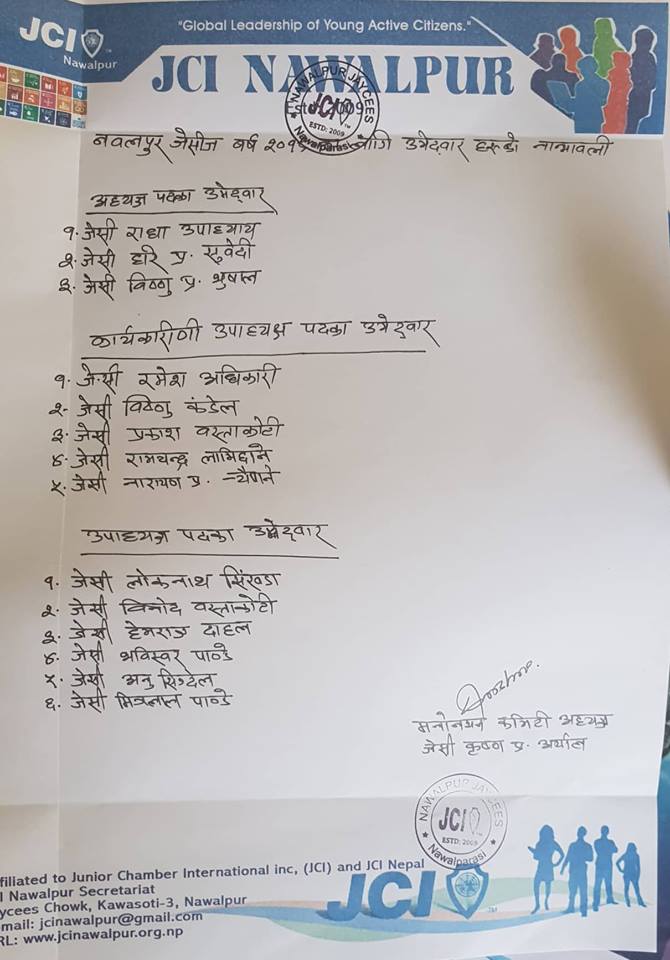 "Global Leadership of Young Active Citizens."
JCI
Nawalpur
JCI NAWALPUR
NAWALPUR JAYCEES
JCI
ESTD: 2009
Nawalparasi
नवलपुर जेसीज वर्ष २०१ लागि उमेद्वार हरुको नामावली
अध्यक्ष पदका उमेद्वार
१. जेसी राधा उपाध्याय
२. जेसी हरि प्र. सुवेदी
३. जेसी विष्णु प्र. भुषाल
कार्यकारीणी उपाध्यक्ष पदका उमेद्वार
१. जेसी रमेश अधिकारी
२. जेसी विष्णु कंडेल
३. जेसी प्रकाश वस्ताकोटी
४. जेसी रामचन्द्र लामिछाने
५. जेसी नारायण प्र.
उपाध्यक्ष पदका उमेद्वार
१. जेसी लोकनाथ सिंखडा
२. जेसी विनोद वस्ताकोटी
३. जेसी हेमराज दाहाल
४. जेसी भविस्वर पाण्डे
५. जेसी अनु सिग्देल
६. जेसी मित्रलाल पाण्डे
मनोनयन कमिटी अध्यक्ष
जेसी कृष्ण प्र. अर्याल
NAWALPUR JAYCEES
JCI
ESTD: 2009
Nawalparasi
ffiliated to Junior Chamber International inc, (JCI) and JCI Nepal
I Nawalpur Secretariat
ycees Chowk, Kawasoti-3, Nawalpur
mail: jcinawalpur@gmail.com
RL: www.jcinawalpur.org.np
JCI